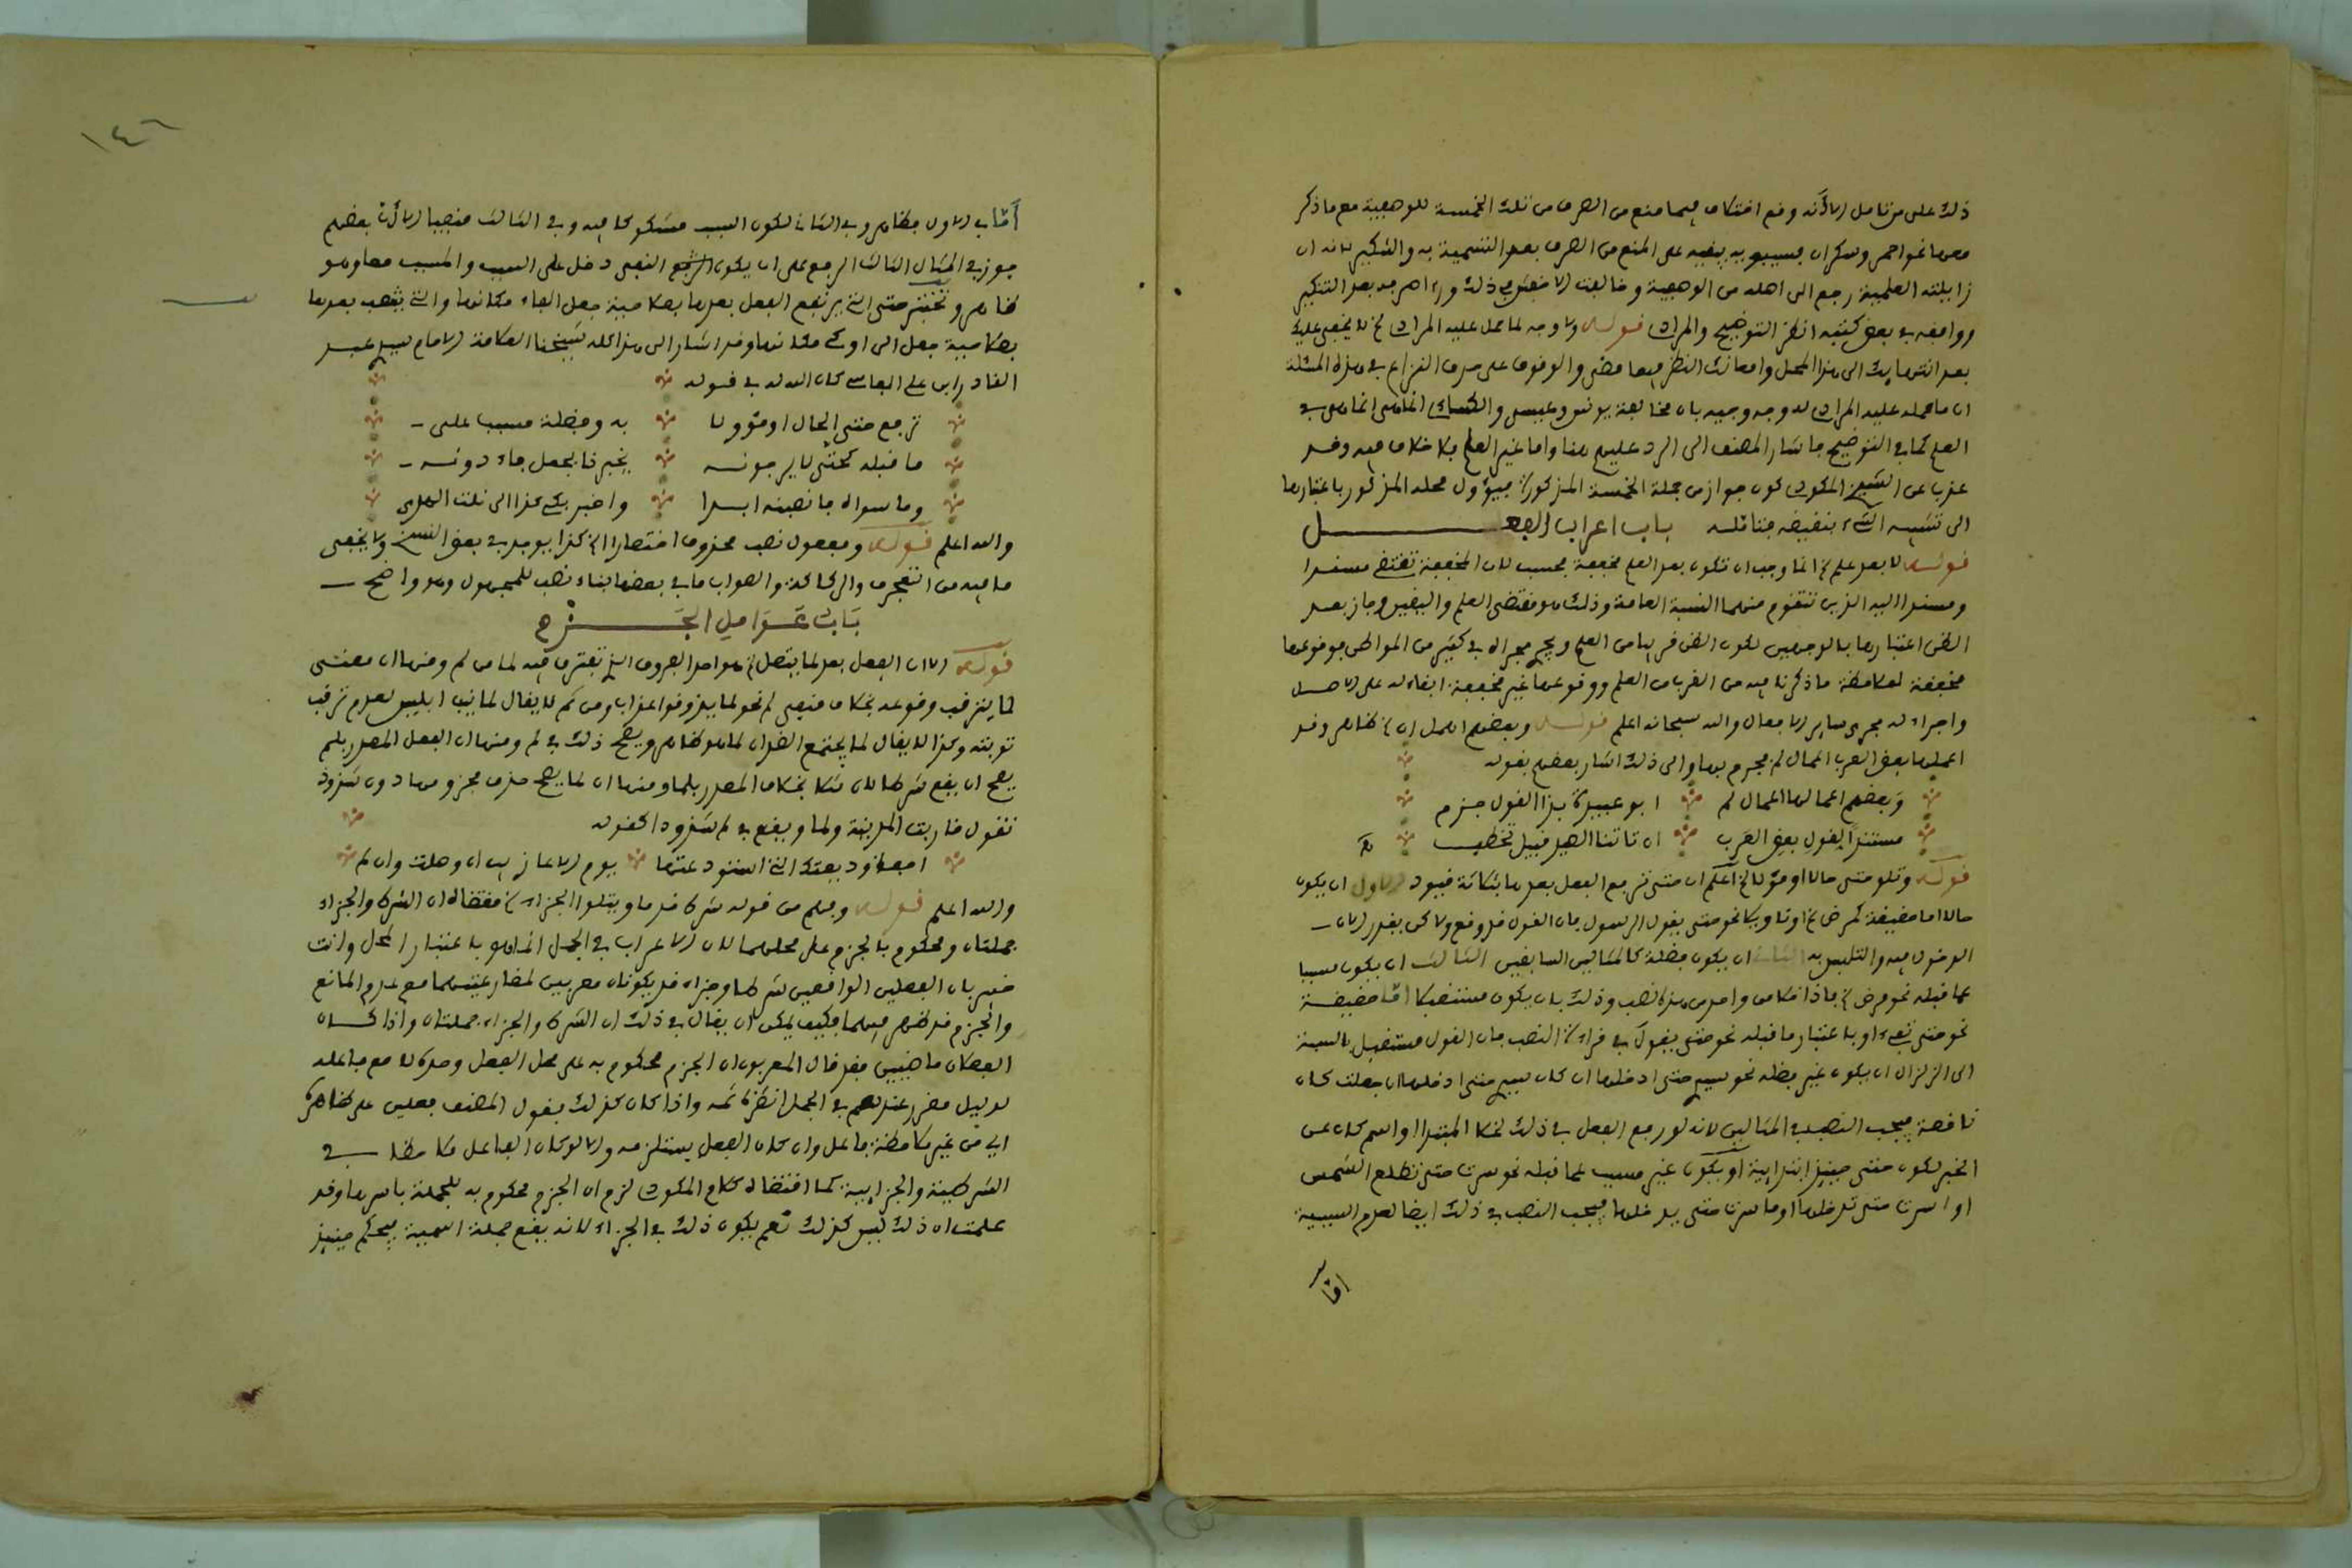 ذلك على من تامل الا أنه وقع اختلاف فيما منع من الصرف من تلك الخمسة للوصفية مع ما ذكر
معها نحو احمر وسكران فسيبويه يبقيه على المنع من الصرف بعد التسمية به والتنكير لانه ان
زايلته العلمية رجع الى اصله من الوصفية وخالفه الاخفش في ذلك وراه صرفه بعد التنكير
ووافقه في بعض كتبه انظر التوضيح والمرادي قوله ولا وجه لما حمل عليه المرادي الخ لا يخفى عليك
بعد انتهايك الى هذا المحل وامعانك النظر فيما مضى والوقوف على صرف النزاع في هذه المسئلة
ان ما حمله عليه المرادي له وجه وجيه بان مخالفة يونس وعيسى والكساي انما هي في
العلم كما في التوضيح فاشار المصنف الى الرد عليهم هنا واما غير العلم فلا خلاف فيه وقد
عزب عن الشيخ المكودي كون جواز من جملة الخمسة المذكورة فيؤول محله المذكور باعتبارها
الى تشبيه الشيء بنقيضه فتأمله باب اعراب الفعل
قوله لا بعد علم الخ انما وجب ان تكون بعد العلم مخففة فحسب لان المخففة تقتضي مسندا
ومسندا اليه الذين تتقوم منهما النسبة العامة وذلك هو مقتضى العلم واليقين وجاز بعد
الظن اعتبارها بالوجهين لكون الظن قريبا من العلم ويجري مجراه في كثير من المواطن فوقوعها
مخففة لملاحظة ما ذكرنا فيه من القرب من العلم ووقوعها غير مخففة ابقاء له على الاصل
واجراء له مجرى ساير الافعال والله سبحانه اعلم قوله وبعضهم اهمل ان الخ ظاهر وقد
اعملها بعض العرب اعمال لم فجزم بها والى ذلك اشار بعضهم بقوله
وبعضهم اعمالها اعمال لم ابو عبيدة بذا القول جزم
مستندا لقول بعض العرب ان تاتنا الصيد قبيل نحطب
قوله وتلو حتى حالا او مؤولا الخ اعلم ان حتى ترفع الفعل بعدها بثلاثة قيود الاول ان يكون
حالا اما حقيقة كمرض الخ او تاويلا نحو حتى يقول الرسول فان القول قد وقع ولاكن يقدر الان
الدخول فيه والتلبس به الثاني ان يكون فضلة كالمثالين السابقين الثالث ان يكون مسببا
عما قبله نحو مرض الخ فاذا خلا من واحد من هذه نصب وذلك بان يكون مستقبلا اما حقيقة
نحو حتى تفيء او باعتبار ما قبله نحو حتى يقول في قراءة النصب فان القول مستقبل بالنسبة
الى الزلزال او يكون غير فضلة نحو سيري حتى ادخلها ان كان سيري حتى ادخلها ان جعلت كان
ناقصة فيجب النصب في المثالين لانه لو رفع الفعل في ذلك لخلا المبتدا او اسم كان عن
الخبر لكون حتى حينئذ ابتدايية او يكون غير مسبب لما قبله نحو سرت حتى تطلع الشمس
او اسرت حتى تدخلها او ما سرت حتى يدخلها فيجب النصب في ذلك ايضا لعدم السببية
امّا
١٤٦
أمّا في الاول فظاهر وفي الثاني لكون السبب مشكوكا فيه وفي الثالث منفيا الا أن بعضهم
جوز في المثال الثالث الرفع على ان يكون النفي دخل على السبب والمسبب معا وهو
ظاهر وتختبر حتى التي يرتفع الفعل بعدها بصلاحية جعل الفاء مكانها والتي ينتصب بعدها
بصلاحية جعل الى او كي مكانها وقد اشار الى هذا كله شيخنا العلامة الامام سيدي عبد
القادر ابن علي الفاسي كان الله له في قوله
ترفع حتى الحال او مؤولا به وفضلة مسبب على
ما قبله كحتى لا يرجونه
وما سواه فانصبنه ابدا واختبر بكي كذا الى نلت الهدى
والله اعلم قوله ومفعول نصب محذوف اختصارا الخ كذا يوجد في بعض النسخ ولا يخفى
ما فيه من التعجرف والركاكة والصواب ما في بعضها ببناء نصب للمجهول وهو واضح
باب عوامل الجزم
قوله الا ان الفعل بعد لما يتصل الخ هو احد الفروق التي تفترق فيه لما من لم ومنها ان منفى
لما يترقب وقوعه بخلاف منفي لم نحو لما يذوقوا عذاب ومن ثم لا يقال لما يتب ابليس لعدم ترقب
توبته وكذا لا يقال لما يجتمع الضدان لما هو ظاهر ويصح ذلك في لم ومنها ان الفعل المصدر بلم
يصح ان يقع شرطا لان مثلا بخلاف المصدر بلما ومنها ان لما يصح حذف مجزومها دون شذوذ
تقول قاربت المدينة ولما ويقع في لم شذوذا كقوله
احفظ وديعتك التي استودعتها يوم الاعازب ان وصلت وان لم
والله اعلم قوله وفهم من قوله شرطا قدما ويتلوا الجزاء الخ مقتضاه ان الشرط والجزاء
جملتان ومحكوم بالجزم على محلهما لان الاعراب في الجمل انما هو باعتبار المحل وانت
خبير بان الفعلين الواقعين شرطا وجزاء قد يكونان معربين لمضارعيتهما مع عدم المانع
والجزم قد ظهر فيهما فكيف يمكن ان يقال في ذلك ان الشرط والجزاء جملتان واذا كان
الفعلان ماضيين فقد قال المعربون ان الجزم محكوم به على محل الفعل وحده لا مع فاعله
لدليل مقرر عندهم في الجمل انظره ثمه واذا كان كذلك فقول المصنف فعلين على ظاهره
اي من غير ملاحظة فاعل وان كان الفعل يستلزمه والا لو كان الفاعل ملاحظا في
الشرطية والجزايية كما اقتضاه كلام المكودي لزم ان الجزم محكوم به للجملة باسرها وقد
علمت ان ذلك ليس كذلك نعم يكون ذلك في الجزاء لانه يقع جملة اسمية فيحكم حينئذ